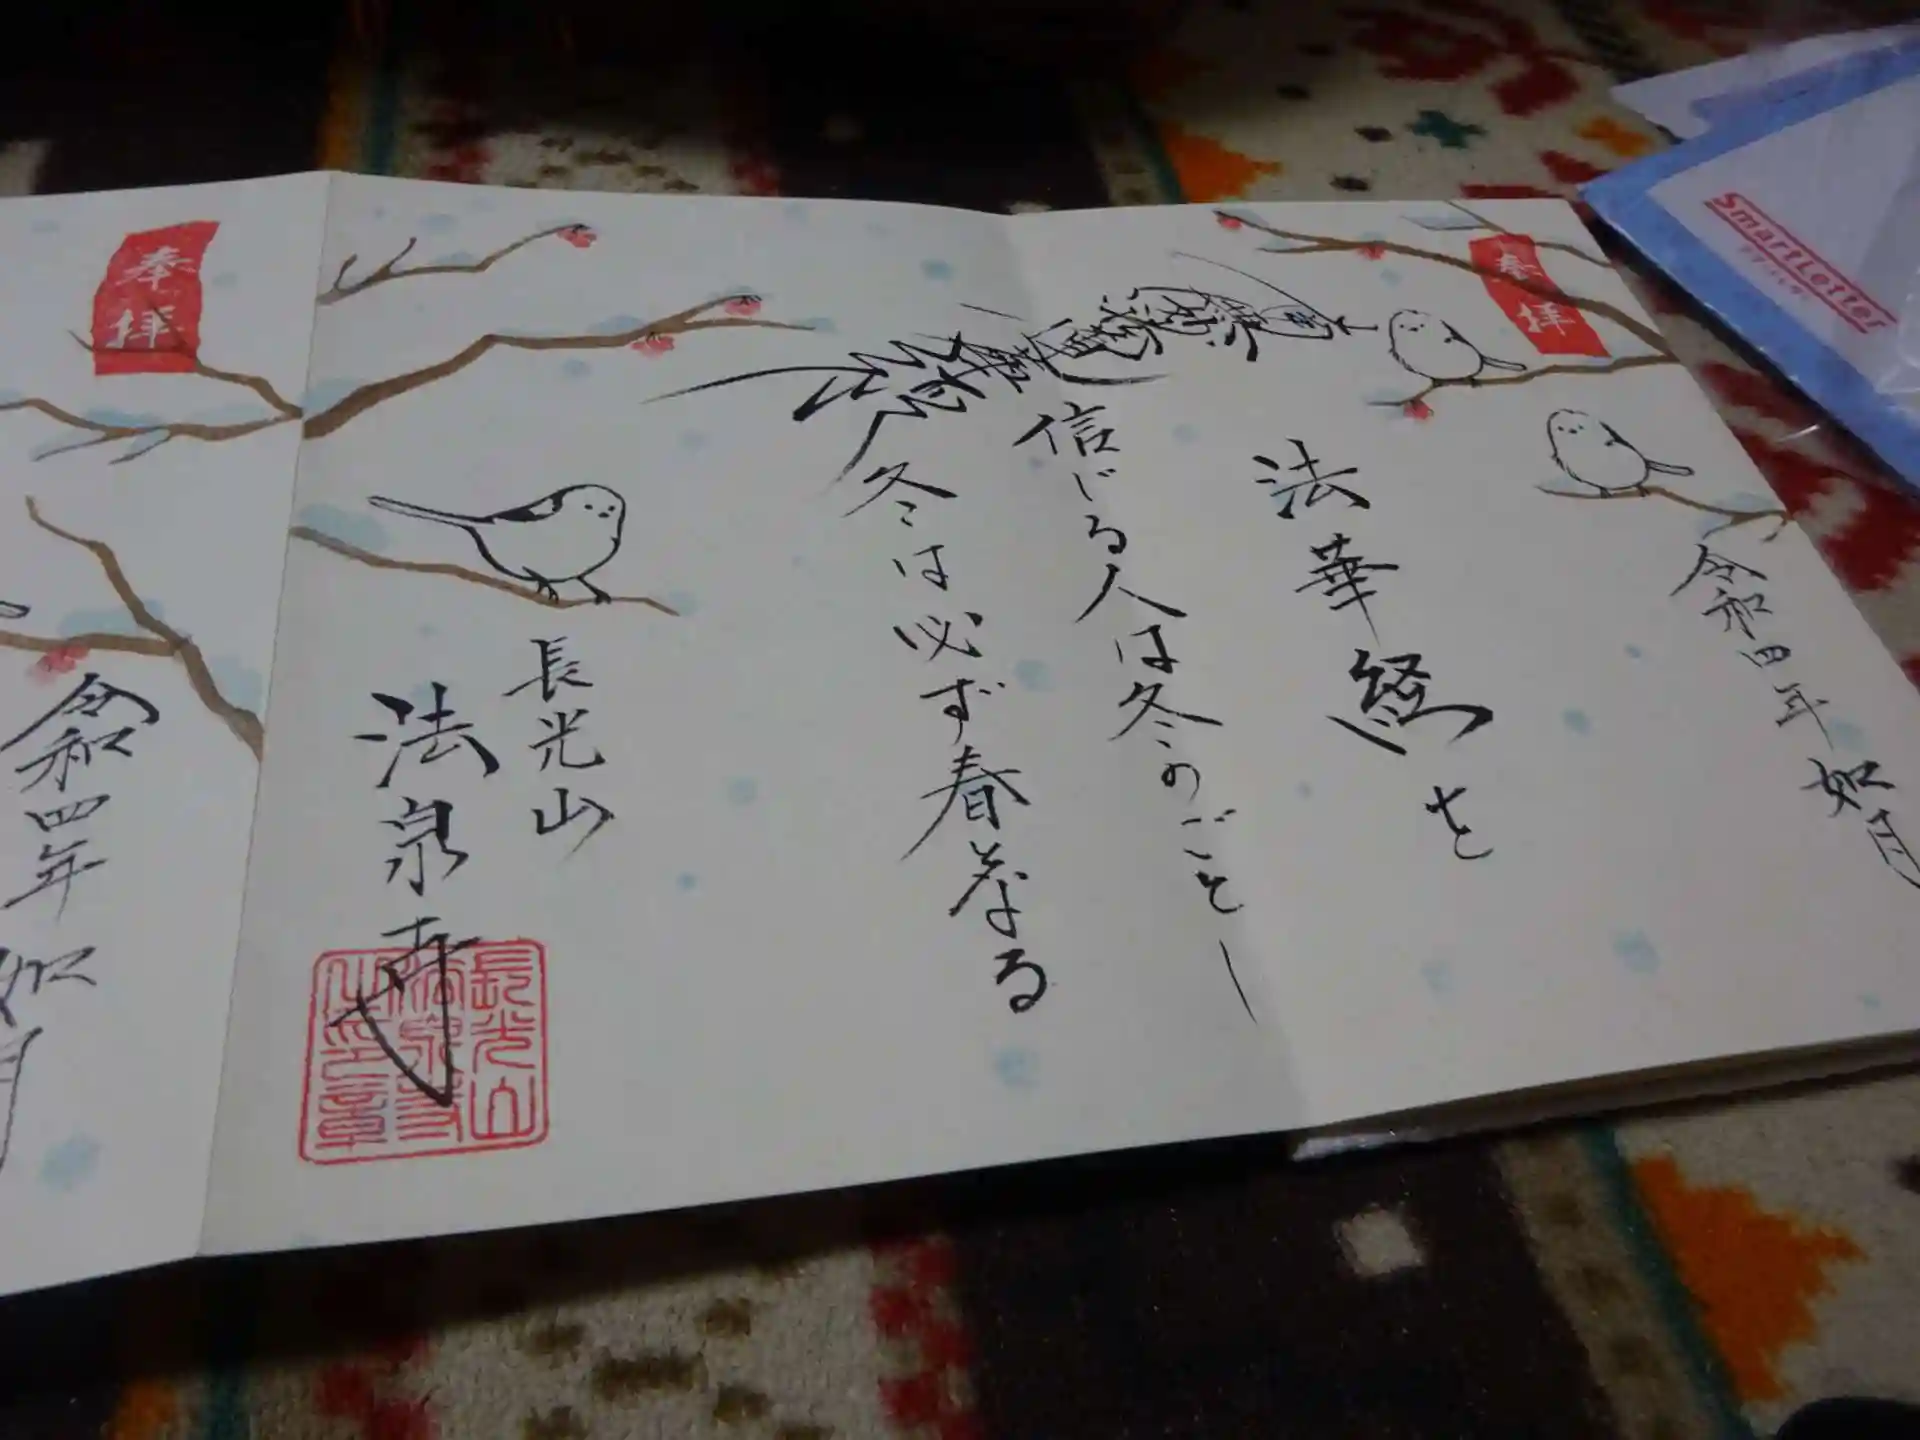 奉拝
令和四年如月
法華経を
信じる人は冬のごとし
冬は必ず春となる
長光山
法泉寺
長光山
法泉寺
奉拝
令和四年如月
SmartLetter